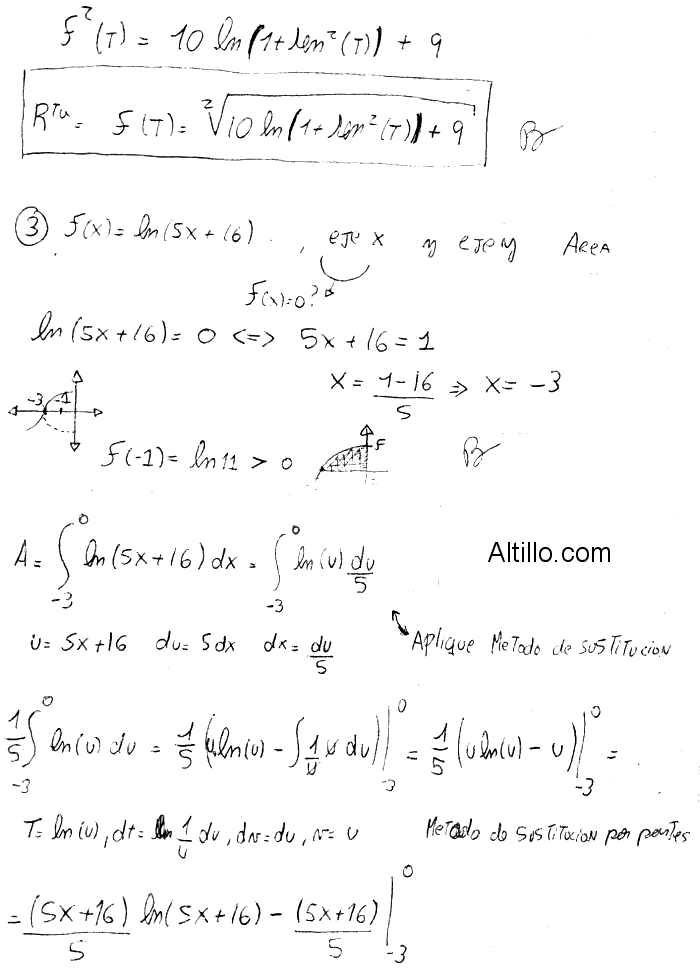 f²(T) = 10 ln(1+sen²(T)) + 9
RTa = f(T) = ²√10 ln(1+sen²(T)) + 9 B
③ f(x) = ln(5x+16) , eje x y eje y Area
f(x)=0?
ln(5x+16) = 0 <=> 5x+16 = 1
x = 1-16/5 => x = -3
-3 -1
f(-1) = ln 11 > 0 F B
A = ∫₋₃⁰ ln(5x+16) dx = ∫₋₃⁰ ln(u) du/5
Altillo.com
u = 5x+16 du = 5dx dx = du/5 Aplique Metodo de sustitucion
1/5 ∫₋₃⁰ ln(u) du = 1/5 (u ln(u) - ∫ 1/u u du) |₋₃⁰ = 1/5 (u ln(u) - u) |₋₃⁰ =
T = ln(u), dt = 1/u du, dv = du, v = u Metodo de sustitucion por partes
= (5x+16)/5 ln(5x+16) - (5x+16)/5 |₋₃⁰